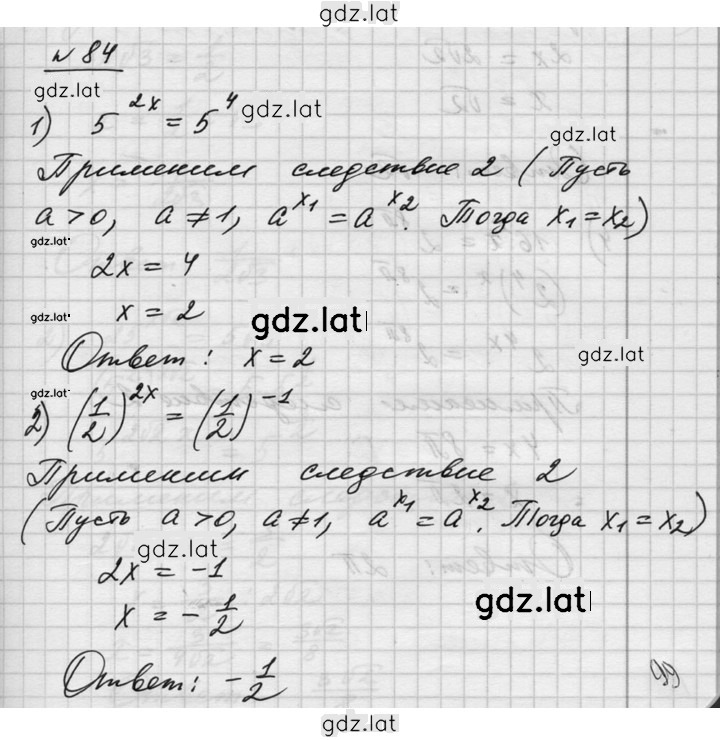 gdz.lat
№ 84
gdz.lat
1) 5^{2x} = 5^4 gdz.lat
gdz.lat
Применим следствие 2 (Пусть
a > 0, a ≠ 1, a^{x₁} = a^{x₂}. Тогда x₁ = x₂)
gdz.lat
2x = 4
gdz.lat
x = 2
gdz.lat
Ответ: x = 2
gdz.lat
gdz.lat
2) (1/2)^{2x} = (1/2)^{-1}
Применим следствие 2
(Пусть a > 0, a ≠ 1, a^{x₁} = a^{x₂}. Тогда x₁ = x₂)
gdz.lat
2x = -1
x = -1/2
gdz.lat
Ответ: -1/2
99
gdz.lat